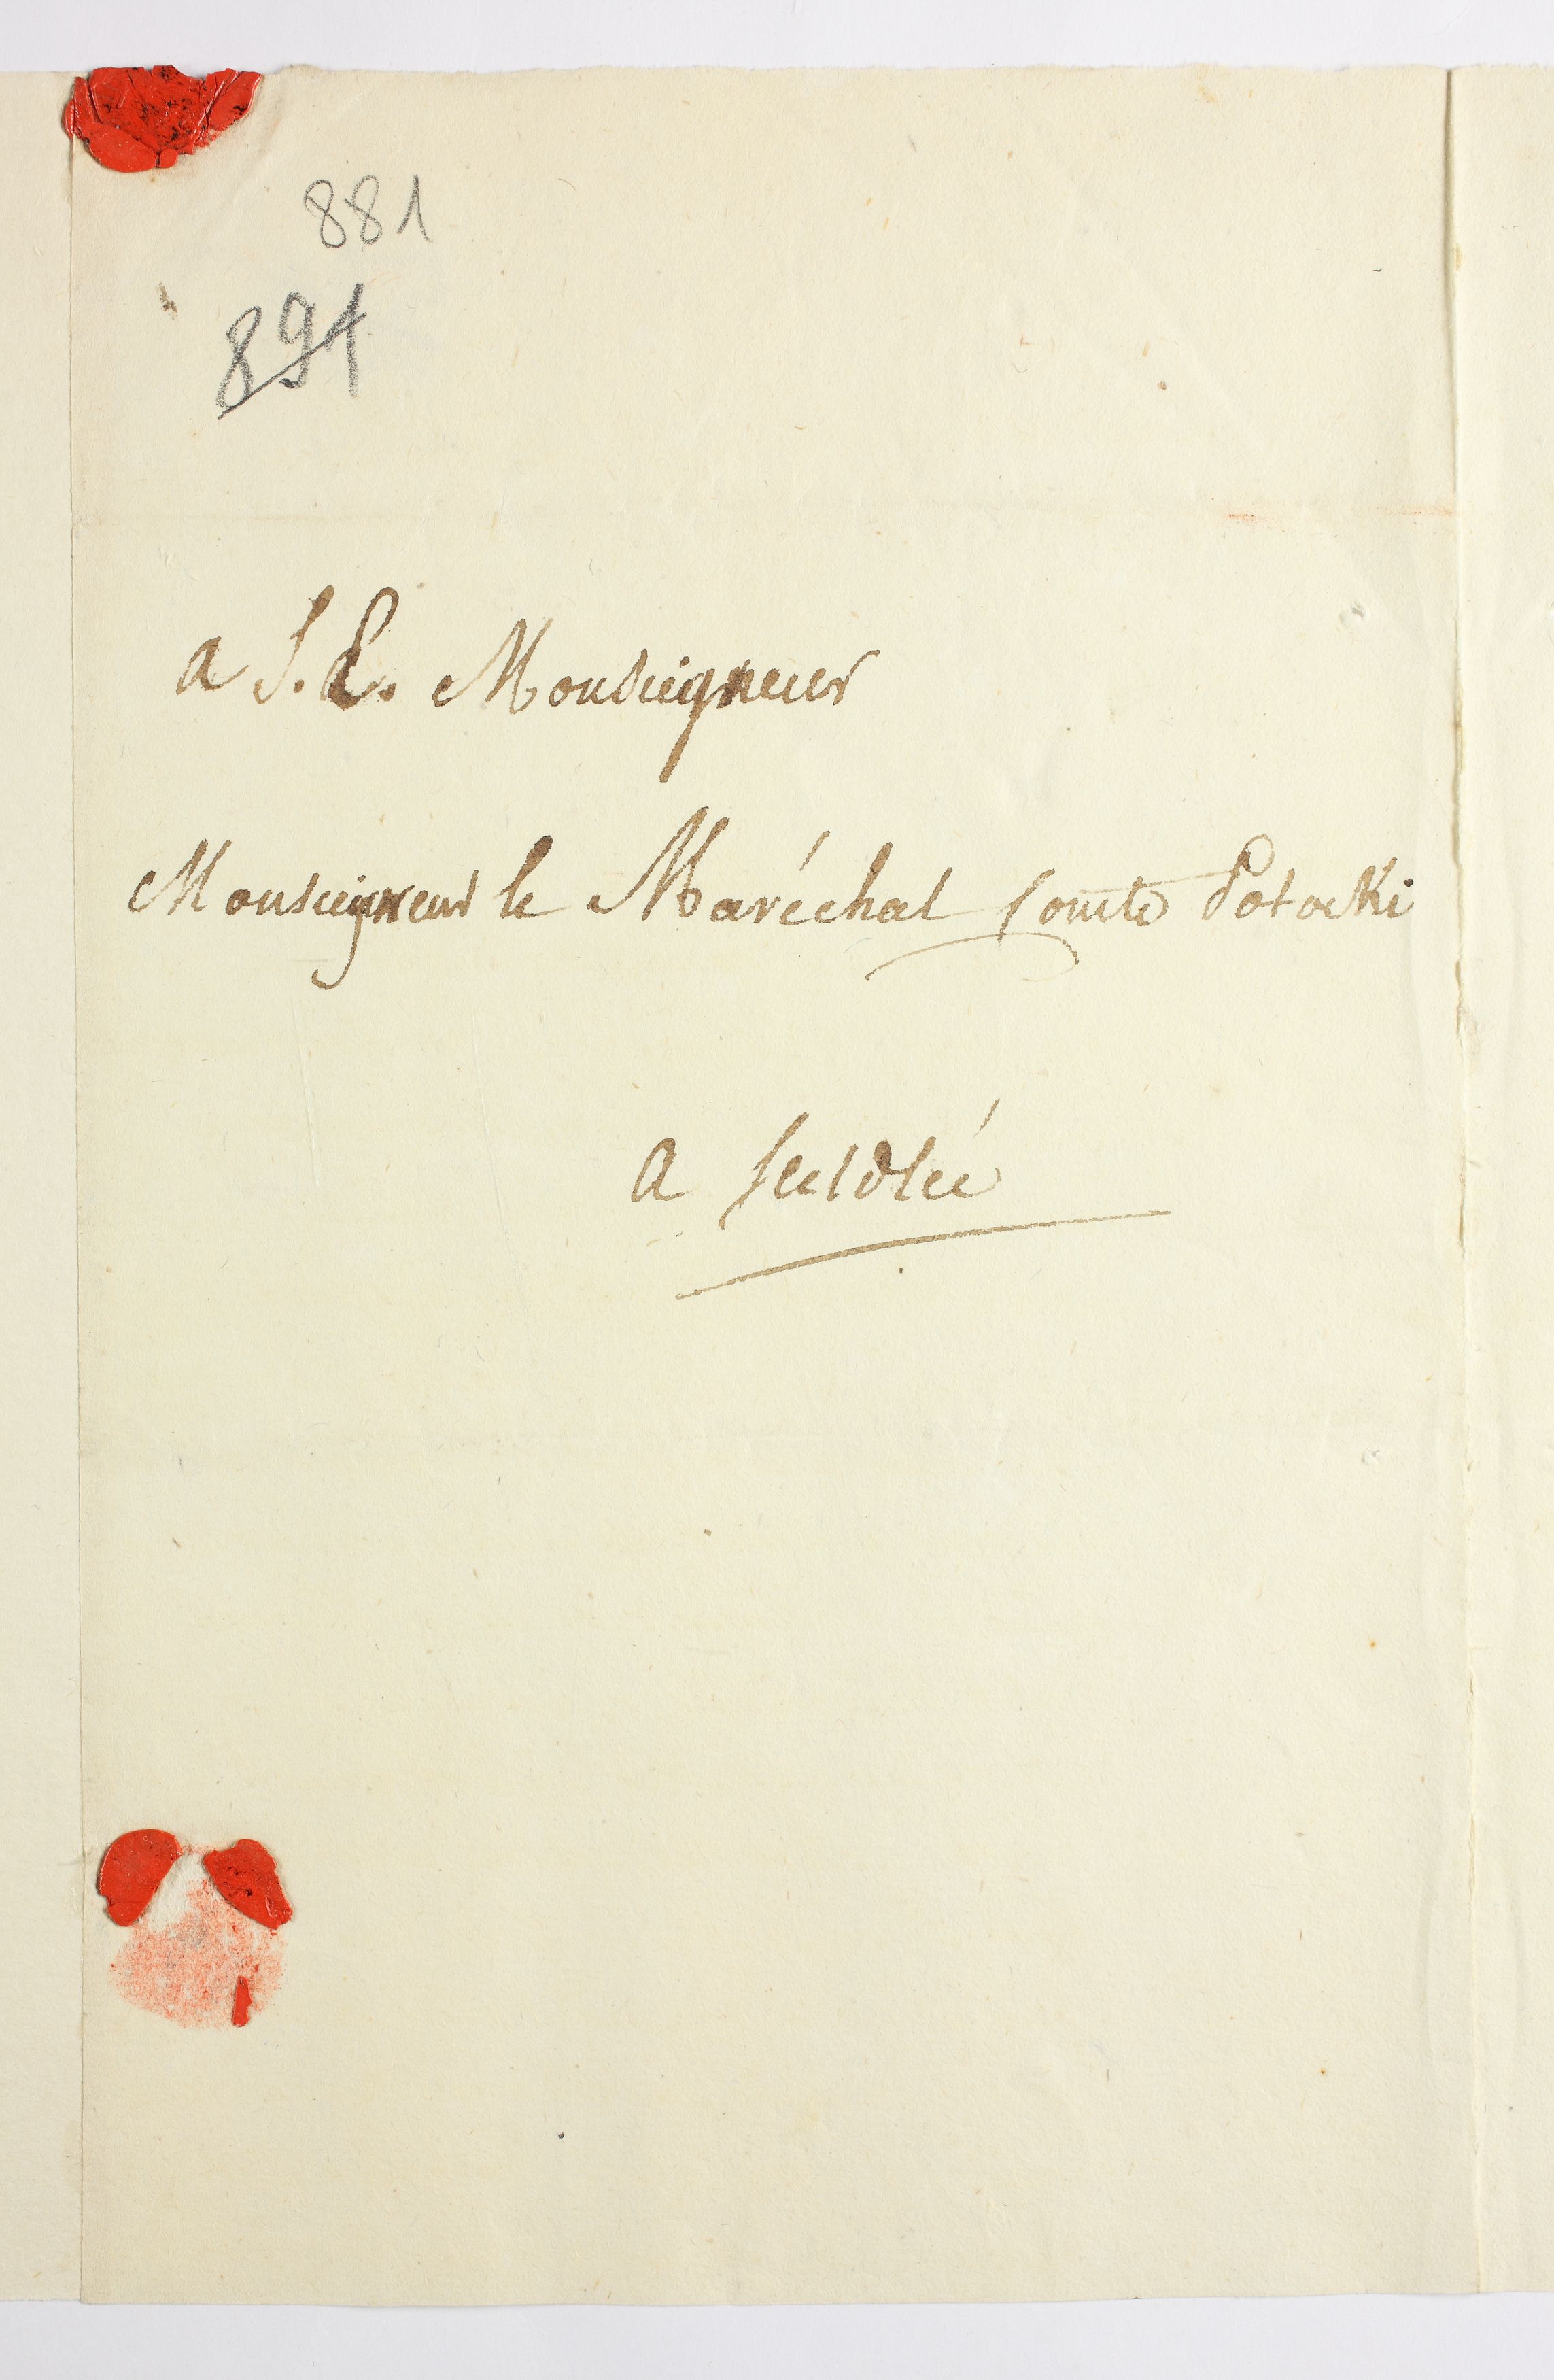 881
894
a S. E. Monseigneur
Monseigneur le Maréchal Comte Potocki
a